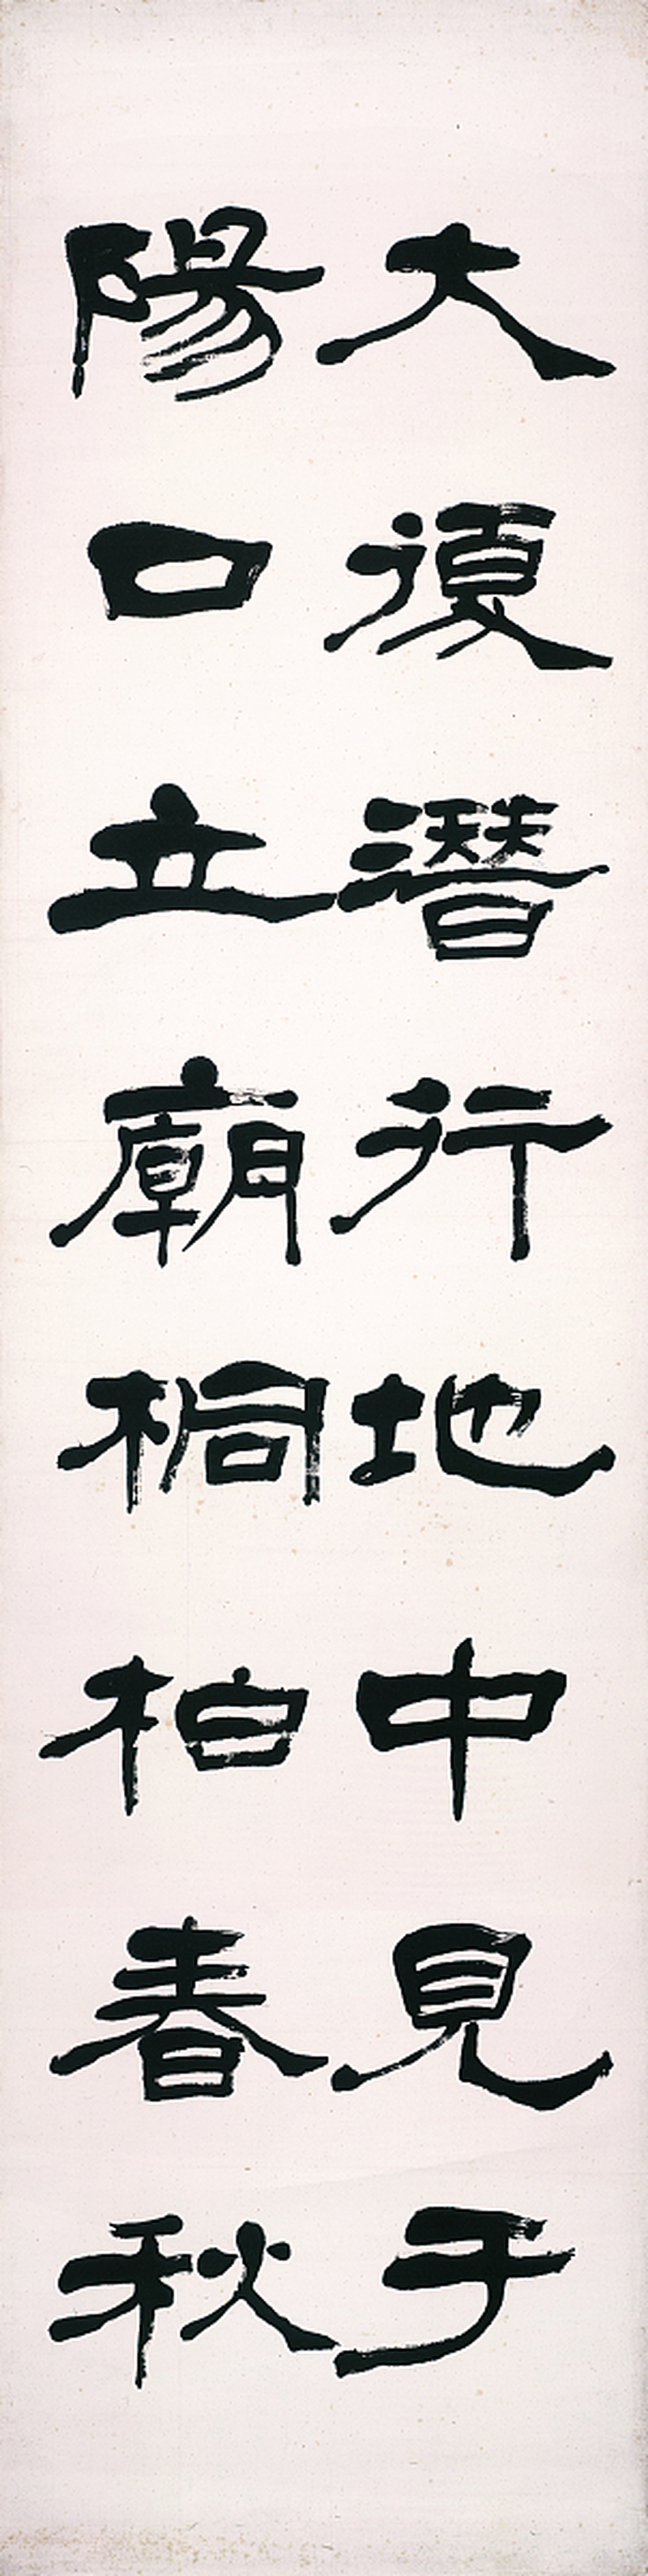 大復潛行地中見于
陽口立廟桐柏春秋